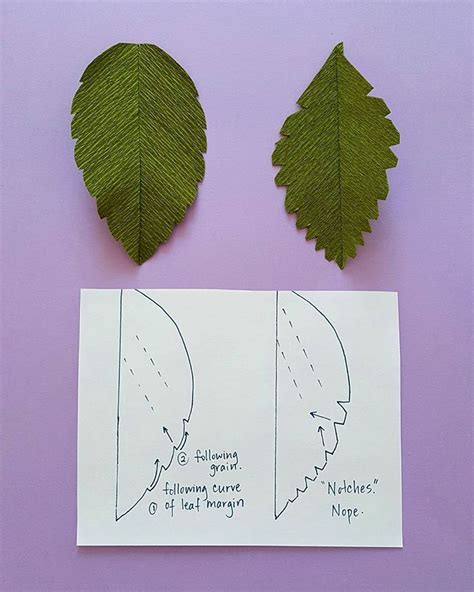 ② following
grain.
following curve
① of leaf margin
"Notches."
Nope.